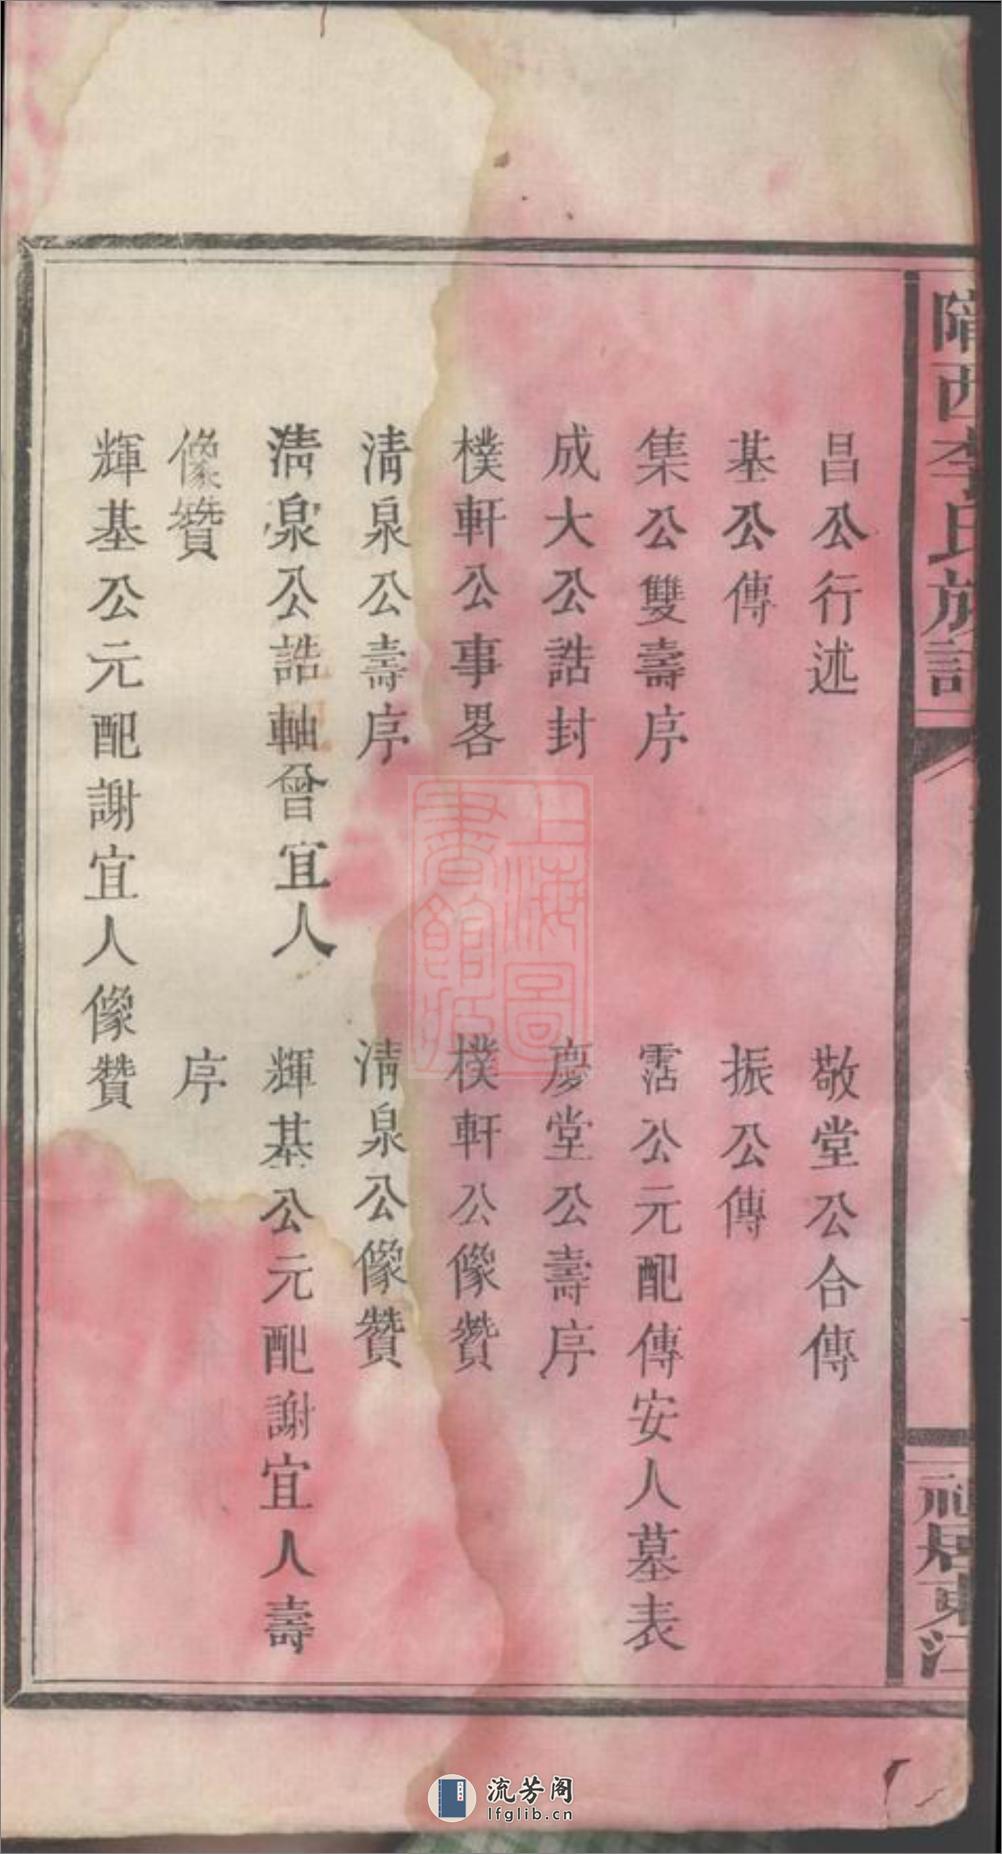 隴西李氏族譜
祠居東江
昌公行述
敬堂公合傳
基公傳
振公傳
集公雙壽序
霑公元配傳安人墓表
成大公誥封
慶堂公壽序
樸軒公事畧
樸軒公像贊
清泉公壽序
清泉公像贊
清泉公誥軸曾宜人
像贊
輝基公元配謝宜人壽
序
輝基公元配謝宜人像贊
上海圖書館藏
流芳阁
lfglib.cn